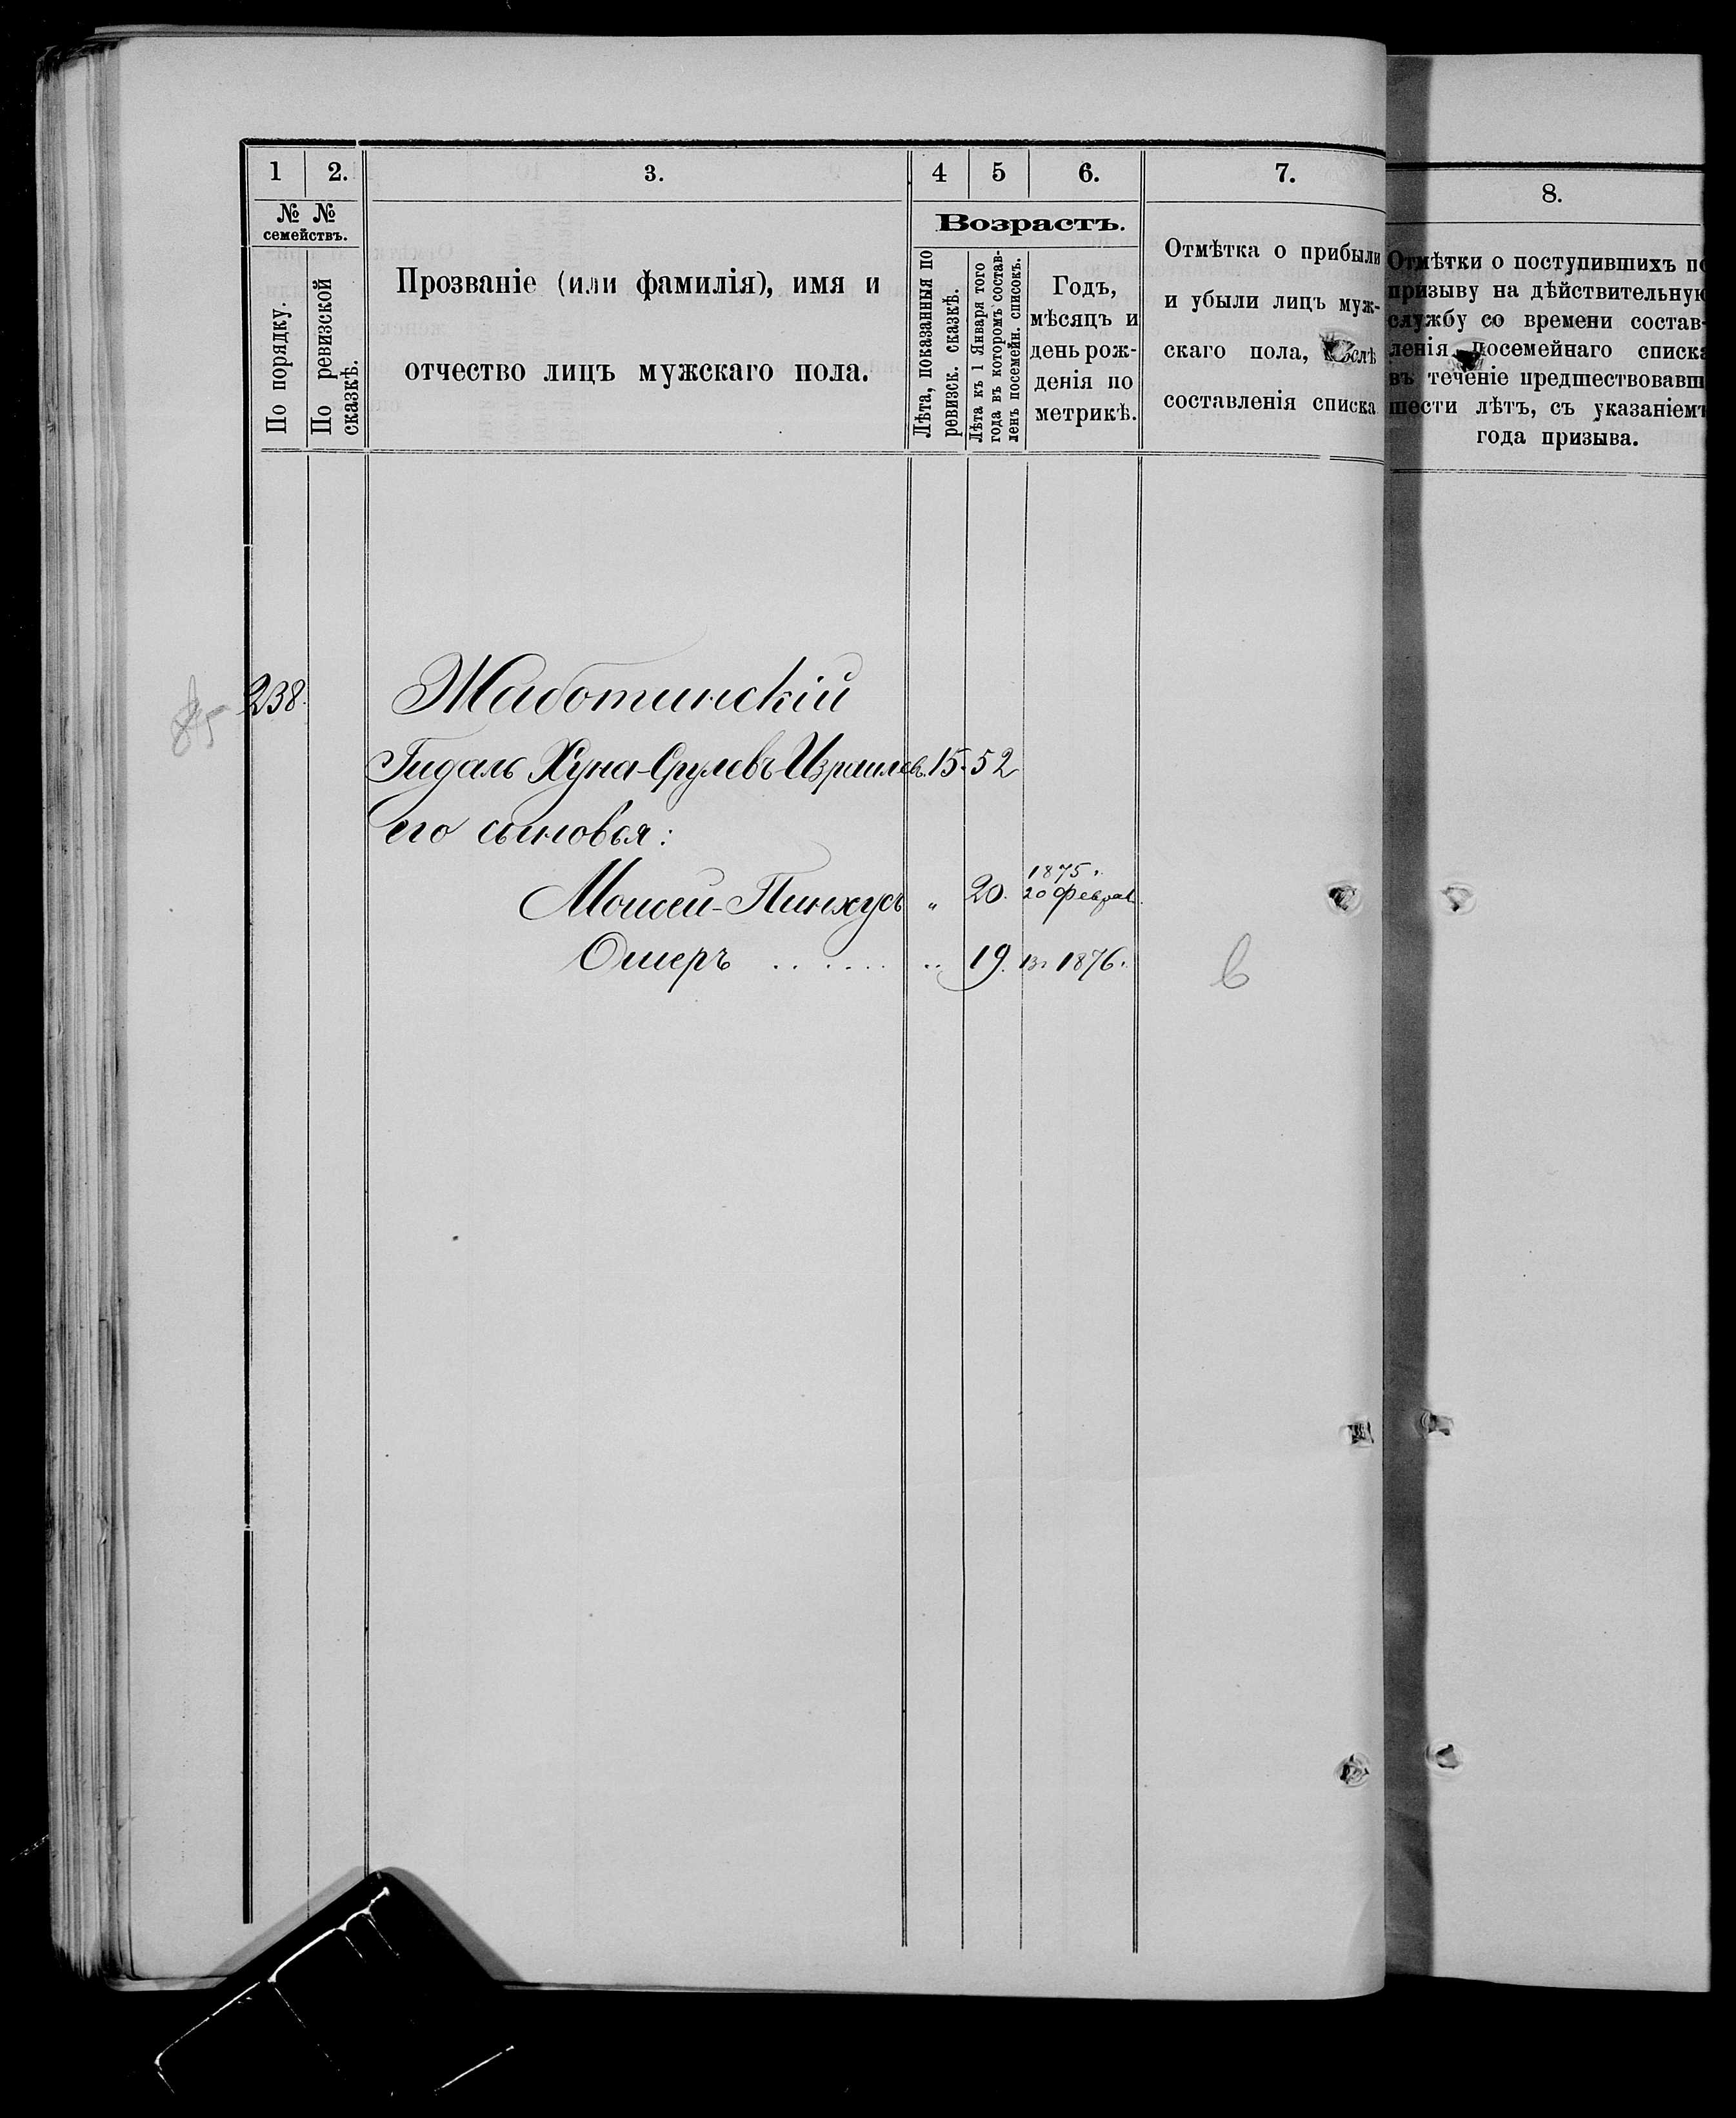 1 2. 3. 4 5 6. 7. 8.
№ № семействъ.
По порядку.
По ревизской сказкѣ.
Прозваніе (или фамилія), имя и
отчество лицъ мужскаго пола.
Возрастъ.
Лѣта, показанныя по
ревизск. сказкѣ.
Лѣта къ 1 Января того
года въ которомъ состав-
ленъ посемейн. списокъ.
Годъ,
мѣсяцъ и
день рож-
денія по
метрикѣ.
Отмѣтка о прибыли
и убыли лицъ муж-
скаго пола, послѣ
составленія списка
Отмѣтки о поступившихъ по
призыву на дѣйствительную
службу со времени состав-
ленія посемейнаго списка
въ теченіе предшествовавш
шести лѣтъ, съ указаніемъ
года призыва.
238. Жаботинскій
Гидаль Хуна-Срулевъ-Израилев. 15. 52
его сыновья:
Моисей-Пинхусъ „ 20. 1875 г.
20 Феврал.
Ошеръ ...... „ 19. 1876 г.
в